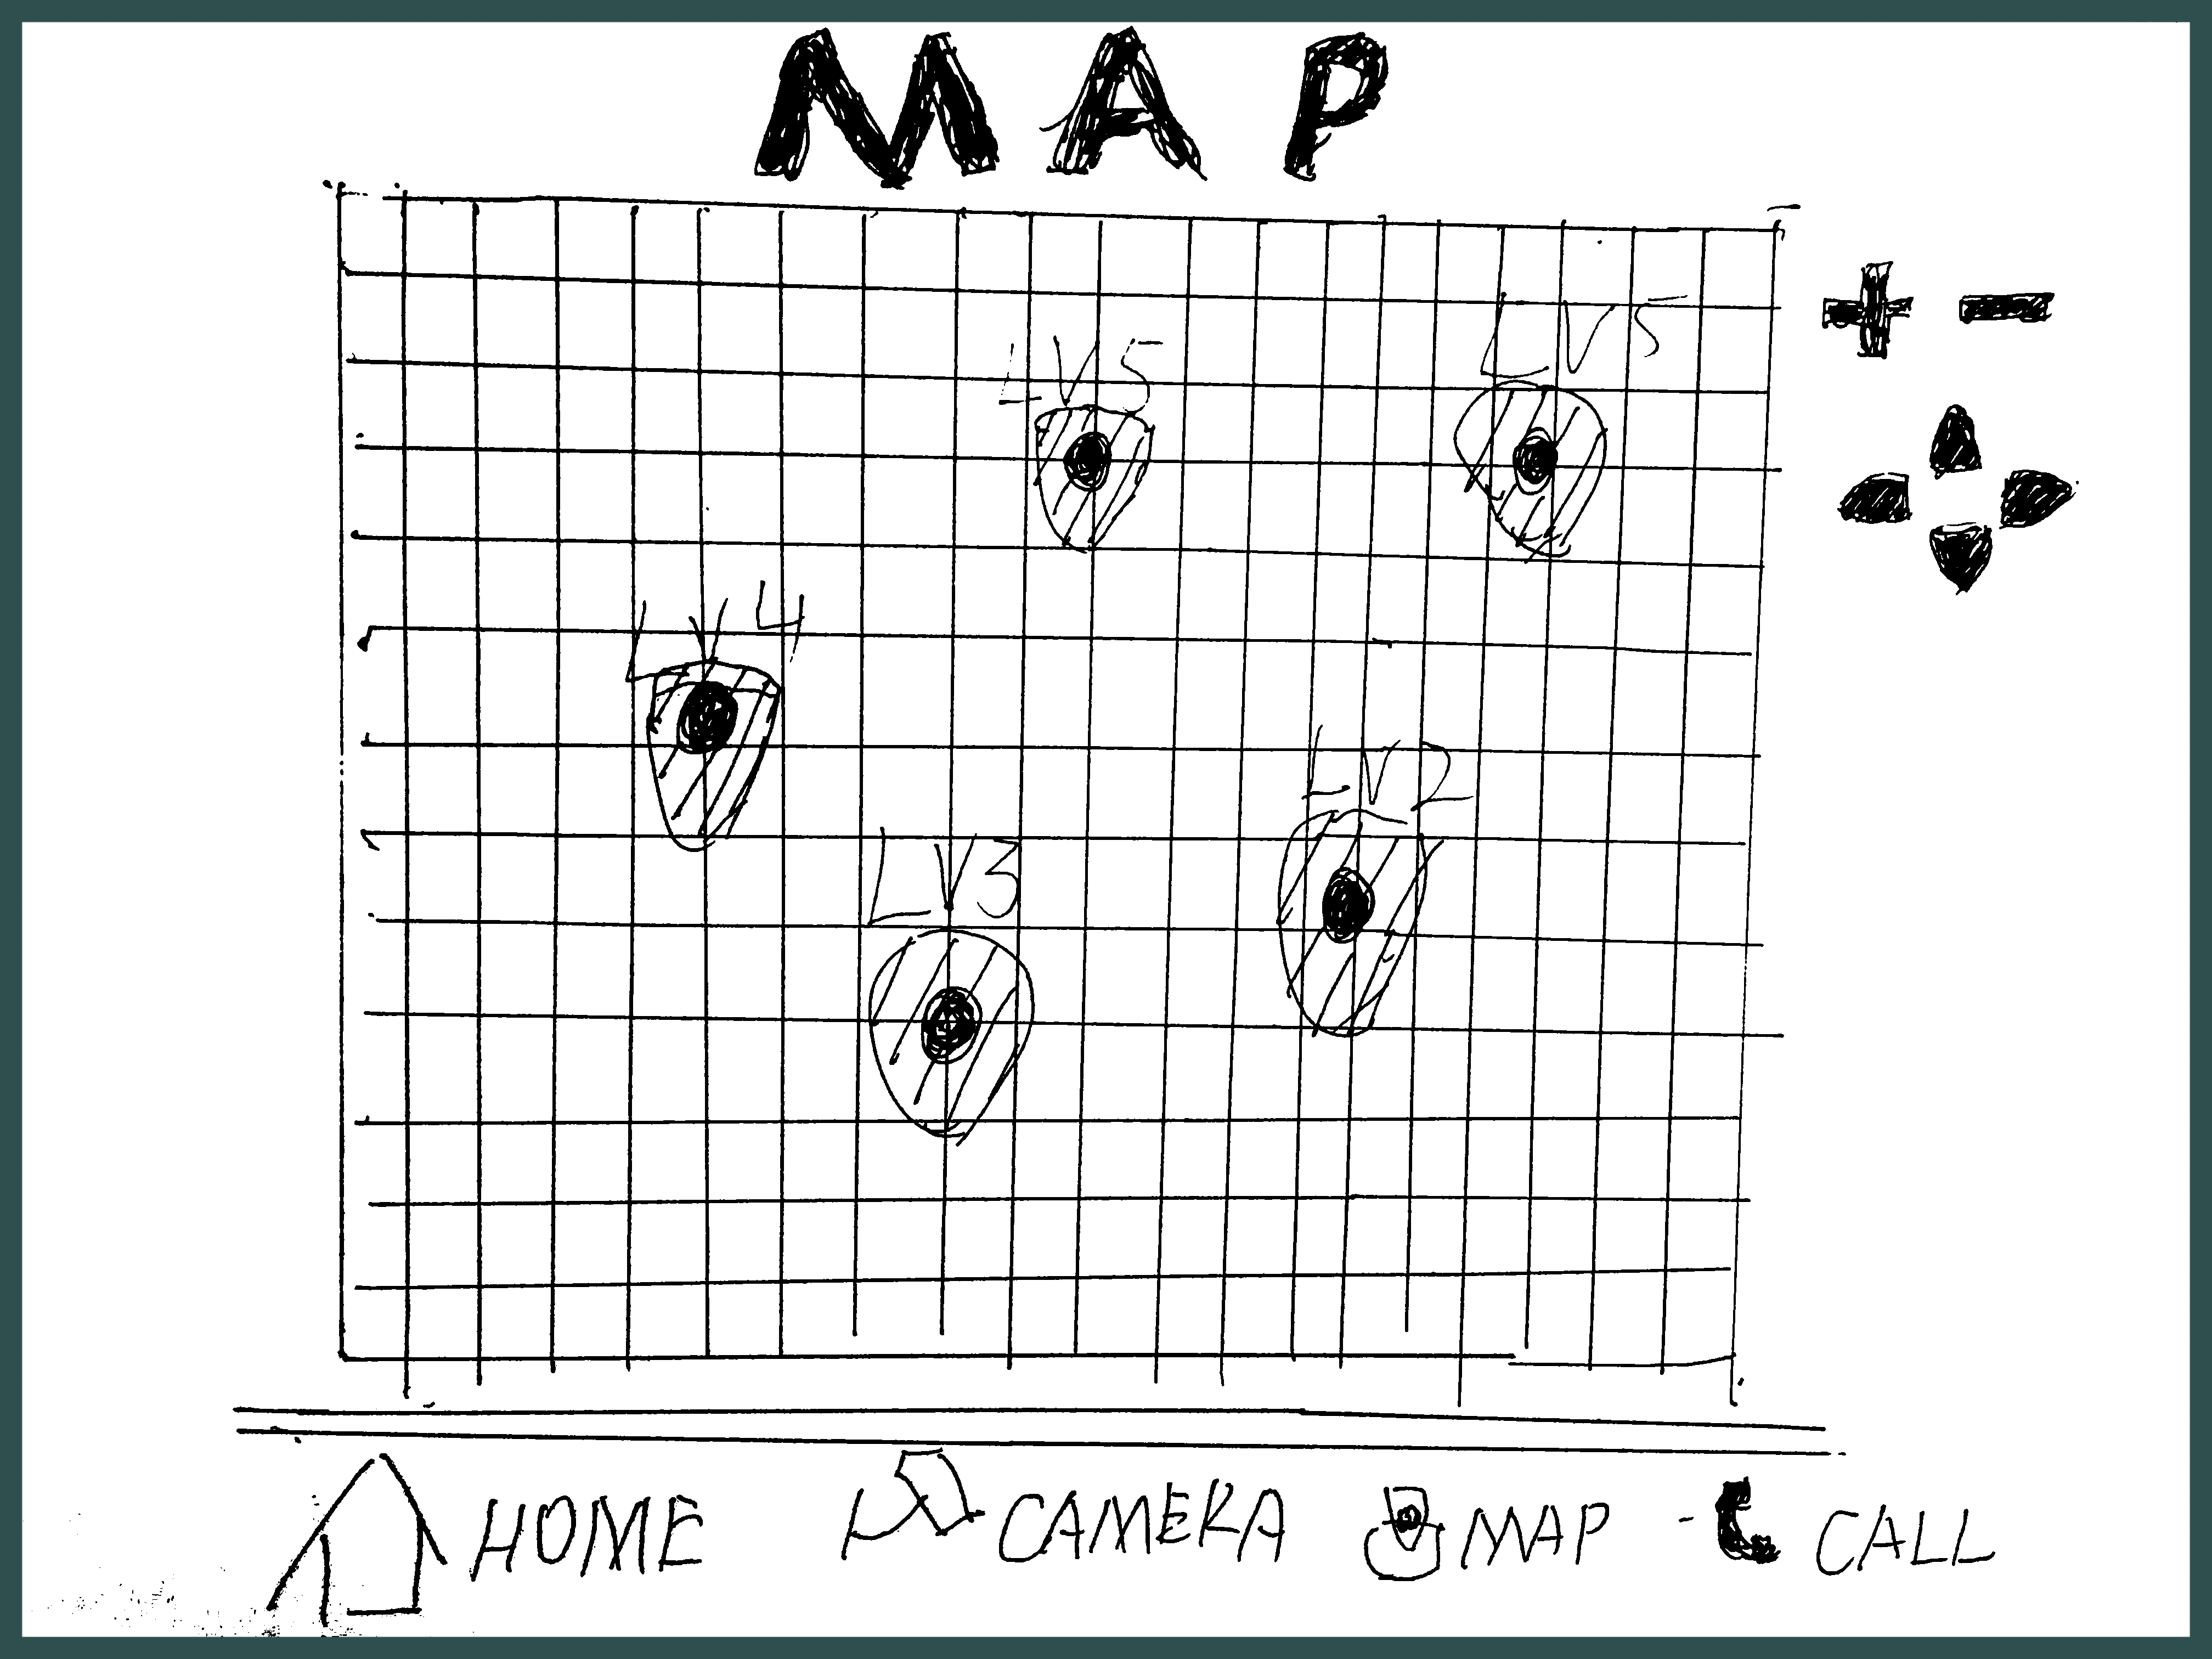 MAP
LV5
LV5
LV4
LV2
LV3
HOME CAMERA MAP CALL